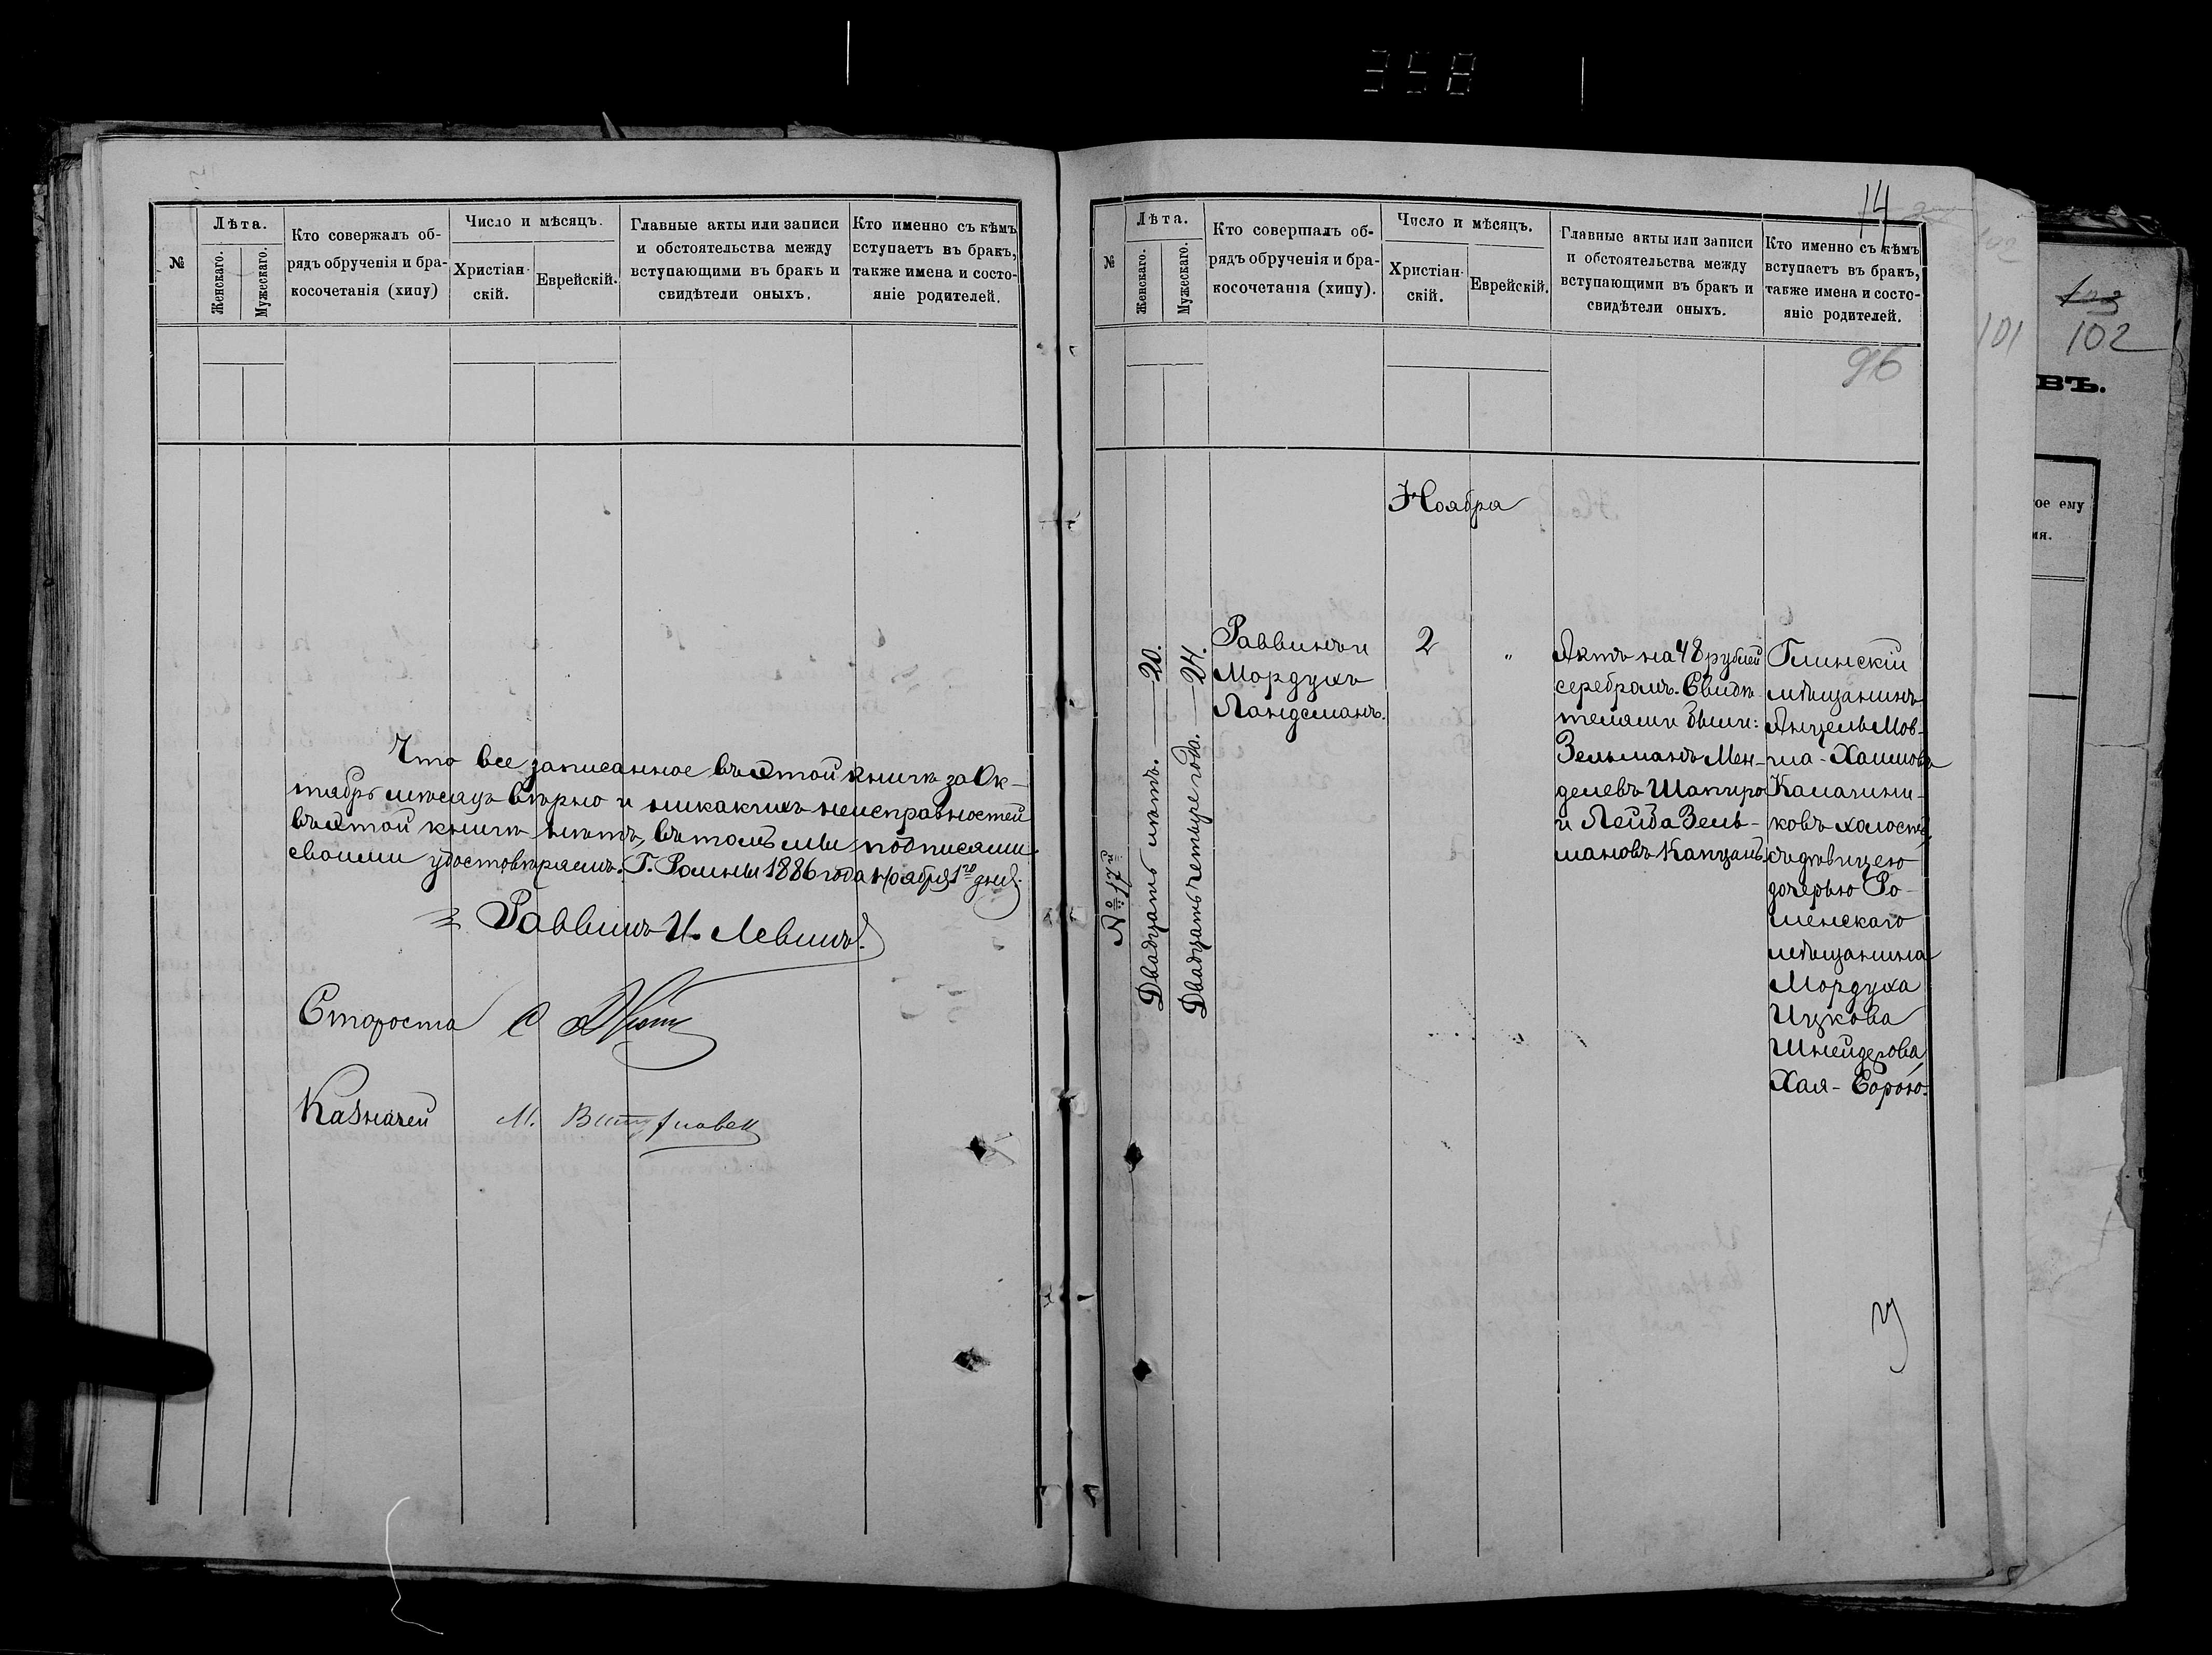 358
№
Лѣта.
Женскаго.
Мужескаго.
Кто совержалъ об-
рядъ обрученія и бра-
косочетанія (хипу)
Число и мѣсяцъ.
Христіан-
скій.
Еврейскій.
Главные акты или записи
и обстоятельства между
вступающими въ бракъ и
свидѣтели оныхъ.
Кто именно съ кѣмъ
вступаетъ въ бракъ,
также имена и состо-
яніе родителей.
Что все записанное въ этой книгѣ за Ок-
тябрь мѣсяцъ вѣрно и никакихъ неисправностей
въ этой книгѣ нѣтъ, въ томъ мы подписями
своими удостовѣряемъ. Г. Ромны 1886 года ноября 1го дня.
Раввинъ И. Левинъ.
Староста
Казначей М.
14
№
Лѣта.
Женскаго.
Мужескаго.
Кто совершалъ об-
рядъ обрученія и бра-
косочетанія (хипу).
Число и мѣсяцъ.
Христіан-
скій.
Еврейскій.
Главные акты или записи
и обстоятельства между
вступающими въ бракъ и
свидѣтели оныхъ.
Кто именно съ кѣмъ
вступаетъ въ бракъ,
также имена и состо-
яніе родителей.
96
Ноября
№ 17й
Двадцать лѣтъ. — 20.
Двадцать четыре года. — 24.
Раввинъ и
Мордухъ
Ландсманъ.
2
"
Актъ на 48 рублей
серебромъ. Свидѣ-
телями были:
Зельманъ Мен-
делевъ Шапиро
и Лейба Зель-
мановъ Капцанъ.
Глинскій
мѣщанинъ
Анцель Мов-
ша-Хаимовъ
Калачни-
ковъ холостъ,
съ дѣвицею
дочерью Ро-
менскаго
мѣщанина
Мордуха
Ицкова
Шнейдерова
Хая-Сорою.
101
102
ВЪ.
ое ему
ия.